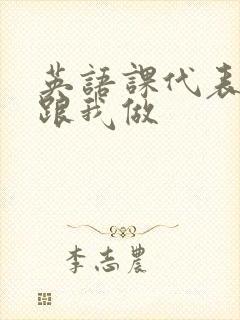 英語課代表
跟我做
李志農